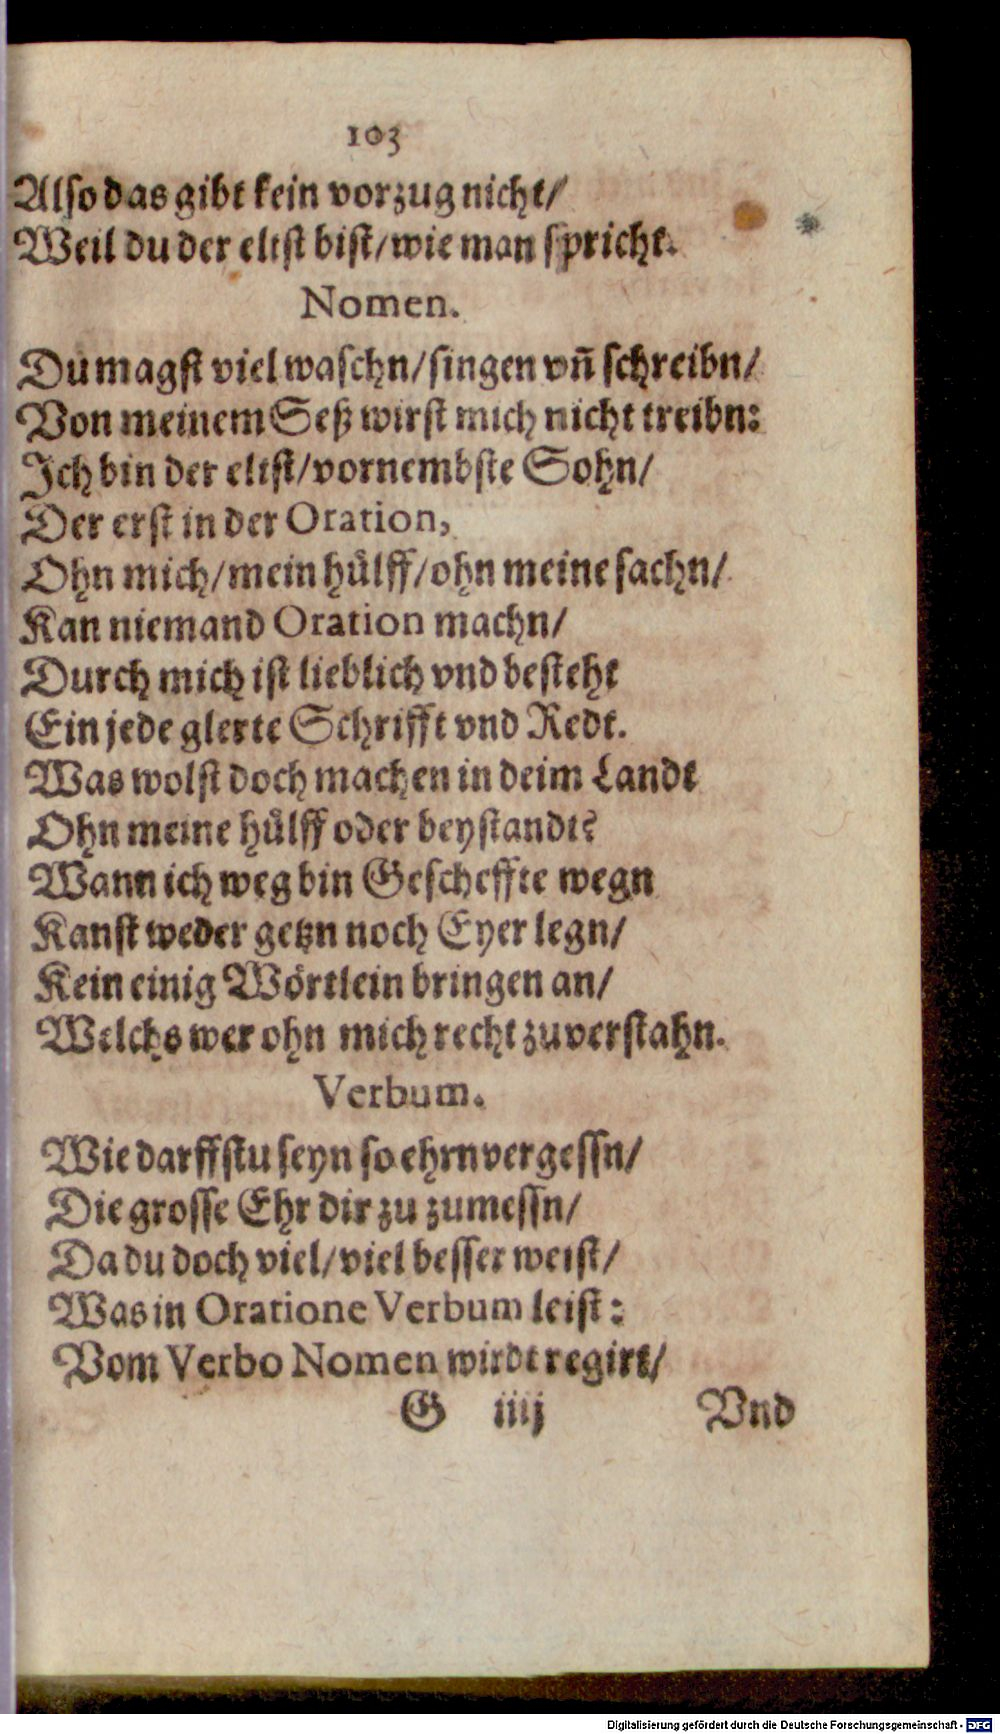 103
Also das gibt kein vorzug nicht/
Weil du der eltst bist/wie man spricht.
Nomen.
Du magst viel waschn/singen vñ schreibn/
Von meinem Seß wirst mich nicht treibn:
Ich bin der eltst/vornembste Sohn/
Der erst in der Oration,
Ohn mich/mein huͤlff/ohn meine sachn/
Kan niemand Oration machn/
Durch mich ist lieblich vnd besteht
Ein jede glerte Schrifft vnd Redt.
Was wolst doch machen in deim Landt
Ohn meine huͤlff oder beystandt?
Wann ich weg bin Gescheffte wegn
Kanst weder getzn noch Eyer legn/
Kein einig Wörtlein bringen an/
Welchs wer ohn mich recht zuverstahn.
Verbum.
Wie darffstu seyn so ehrnvergessn/
Die grosse Ehr dir zu zumessn/
Da du doch viel/viel besser weist/
Was in Oratione Verbum leist:
Vom Verbo Nomen wirdt regirt/
G iiij Vnd
Digitalisierung gefördert durch die Deutsche Forschungsgemeinschaft - DFG